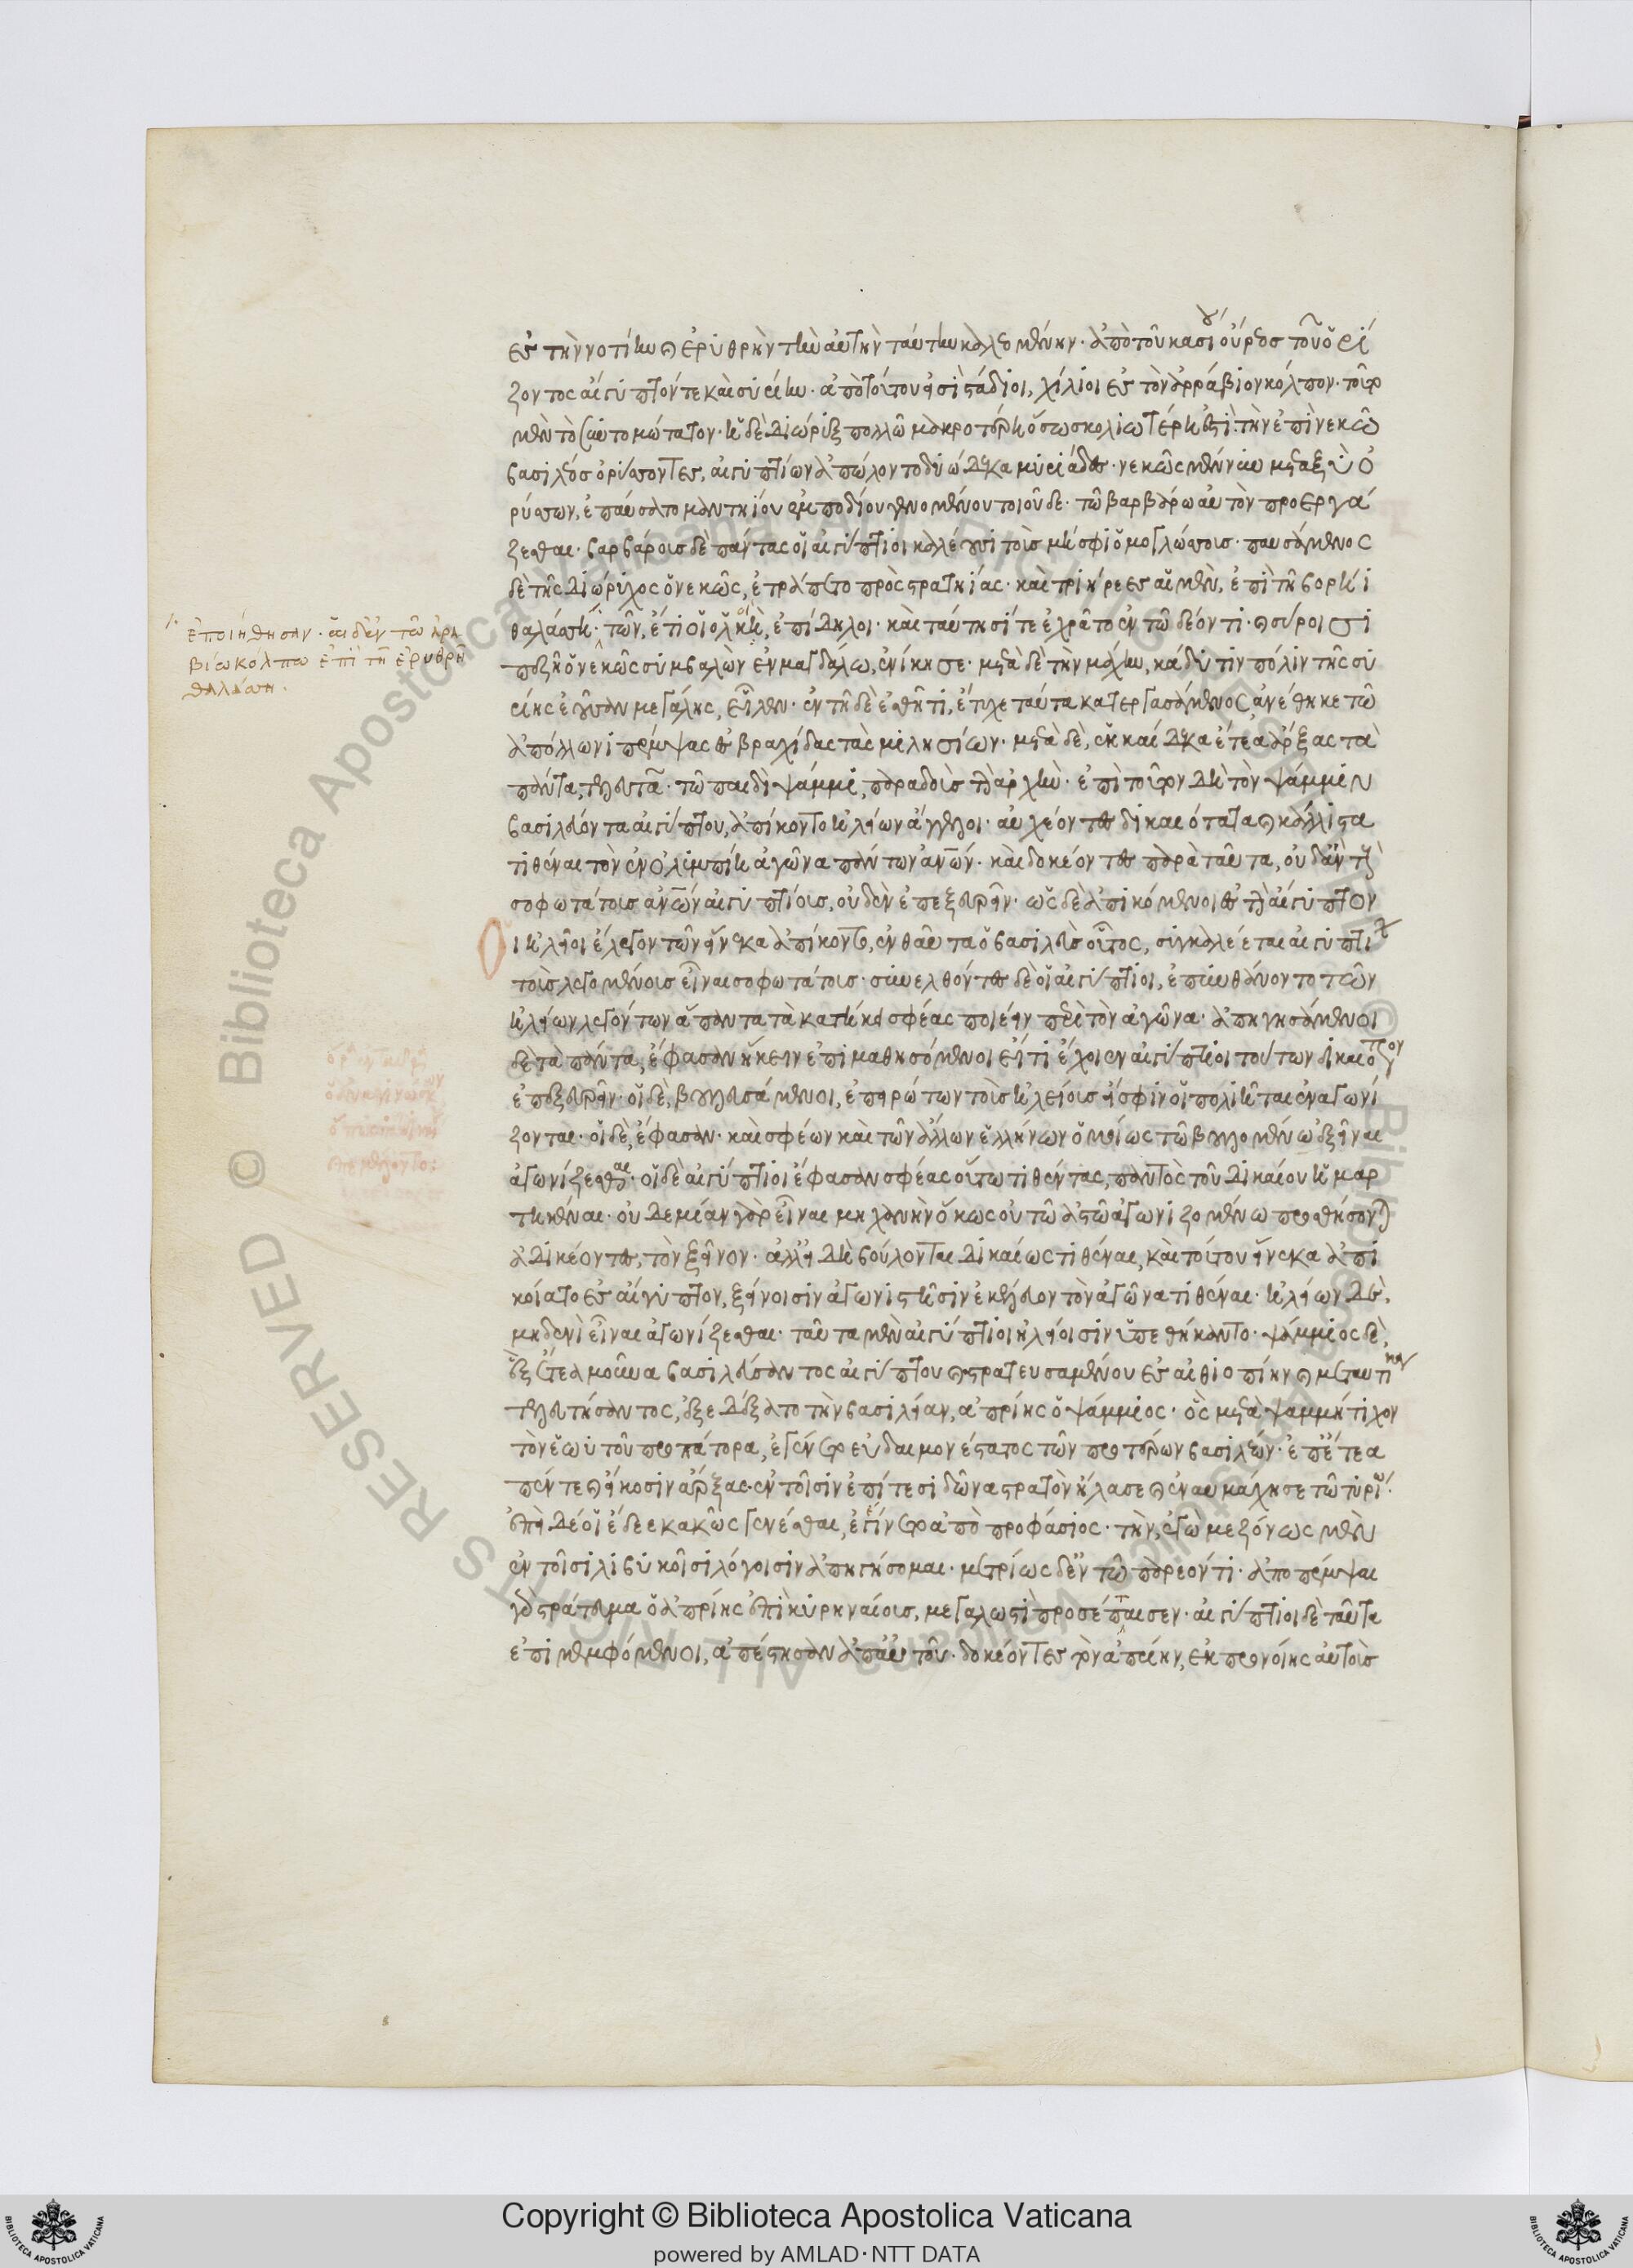 ἐς τὴν νοτίην καὶ ἐρυθρὴν τὴν αὐτὴν ταύτην καλεομένην· ἀπὸ τοῦ κασίου οὔρεος τοῦ ὁρί
ζοντος αἴγυπτόν τε καὶ συρίην· ἀπὸ τούτου εἰσὶ στάδιοι, χίλιοι ἐς τὸν ἀρράβιον κόλπον· τοῦτο
μὲν τὸ συντομώτατον· ἡ δὲ διώρυξ πολλῶ μακροτέρη ὅσω σκολιωτέρη ἐστί· τὴν ἐπὶ νεκῶ
βασιλέος ὀρύσσοντες, αἰγυπτίων ἀπώλοντο δυώδεκα μυριάδες· νεκῶς μέν νυν μεταξὺ ὀ
ρύσσων, ἐπαύσατο μαντηίου ἐμποδίου γενομένου τοιοῦδε· τῶ βαρβάρω αὐτὸν προεργά
ζεσθαι· βαρβάρους δὲ πάντας οἱ αἰγύπτιοι καλέουσι τοὺς μή σφι ὁμογλώσσους· παυσάμενος
δὲ τῆς διώρυχος ὁ νεκῶς, ἐτράπετο πρὸς στρατηίας· καὶ τριήρεες αἱ μὲν, ἐπὶ τῆ βορηί
θαλάσση· τῶν, ἔτι οἱ ὁλκοὶ, ἐπίδηλοι· καὶ ταύτησί τε ἐχρᾶτο ἐν τῶ δέοντι· καὶ σύροισι
πεζῆ ὁ νεκῶς συμβαλὼν ἐν μαγδάλω, ἐνίκησε· μετὰ δὲ τὴν μάχην, κάδυτιν πόλιν τῆς συ
ρίης ἐοῦσαν μεγάλης, εἷλεν· ἐν τῆ δὲ ἐσθῆτι, ἔτυχε ταῦτα κατεργασάμενος, ἀνέθηκε τῶ
ἀπόλλωνι πέμψας ἐς βραχίδας τὰς μιλησίων· μετὰ δὲ, ἑκκαίδεκα ἔτεα ἄρξας τὰ
πάντα, τελευτᾶ· τῶ παιδὶ ψάμμι, παραδοὺς τὴν ἀρχήν· ἐπὶ τοῦτον δὴ τὸν ψάμμιν
βασιλεύοντα αἰγύπτου, ἀπίκοντο ἠλείων ἄγγελοι· αὐχέοντες δικαιότατα καὶ κάλλιστα
τιθέναι τὸν ἐν ὀλυμπίη ἀγῶνα πάντων ἀνων· καὶ δοκέοντες παρὰ ταῦτα, οὐδ' ἂν τοὺς
σοφωτάτους ἀνων αἰγυπτίους, οὐδὲν ἐπεξευρεῖν· ὡς δὲ ἀπικόμενοι ἐς τὴν αἴγυπτον
οἱ ἠλεῖοι ἔλεγον τῶν εἵνεκα ἀπίκοντο, ἐνθαῦτα ὁ βασιλεὺς οὗτος, συγκαλέεται αἰγυπτίων
τοὺς λεγομένους εἶναι σοφωτάτους· συνελθόντες δὲ οἱ αἰγύπτιοι, ἐπυνθάνοντο τῶν
ἠλείων λεγόντων ἅπαντα τὰ κατήκει σφέας ποιέειν περὶ τὸν ἀγῶνα· ἀπηγησάμενοι
δὲ τὰ πάντα, ἔφασαν ἥκειν ἐπιμαθησόμενοι εἴ τι ἔχοιεν αἰγύπτιοι τούτων δικαιότερον
ἐπεξευρεῖν· οἱ δὲ, βουλευσάμενοι, ἐπηρώτων τοὺς ἠλείους εἴ σφιν οἱ πολιῆται ἐναγωνί
ζονται· οἱ δὲ, ἔφασαν· καὶ σφέων καὶ τῶν ἄλλων ἑλλήνων ὁμοίως τῶ βουλομένω ἐξεῖναι
ἀγωνίζεσθαι· οἱ δὲ αἰγύπτιοι ἔφασαν σφέας οὕτω τιθέντας, παντὸς τοῦ δικαίου ἡμαρ
τηκέναι· οὐδεμίαν γὰρ εἶναι μηχανὴν ὅκως οὐ τῶ ἀστῶ ἀγωνιζομένω προσθήσονται
ἀδικέοντες, τὸν ξεῖνον· ἀλλ' εἰ δὴ βούλονται δικαίως τιθέναι, καὶ τούτου εἵνεκα ἀπι
κοίατο ἐς αἴγυπτον, ξείνοισιν ἀγωνιστῆσιν ἐκέλευον τὸν ἀγῶνα τιθέναι· ἠλείων δὲ,
μηδενὶ εἶναι ἀγωνίζεσθαι· ταῦτα μὲν αἰγύπτιοι ἠλείοισιν ὑπεθήκαντο· ψάμμιος δὲ,
ἓξ ἔτεα μοῦνα βασιλεύσαντος αἰγύπτου καὶ στρατευσαμένου ἐς αἰθιοπίην καὶ μεταυτίκα
τελευτήσαντος, ἐξεδέξατο τὴν βασιληίαν, ἀπρίης ὁ ψάμμιος· ὃς μετὰ ψαμμήτιχον
τὸν ἑωυτοῦ προπάτορα, ἐγένετο εὐδαιμονέστατος τῶν προτέρων βασιλέων· ἐπ' ἔτεα
πέντε καὶ εἴκοσιν ἄρξας· ἐν τοῖσιν ἐπί τε σιδῶνα στρατὸν ἤλασε καὶ ἐναυμάχησε τῶ τυρίω·
ἐπεὶ δέ οἱ ἔδεε κακῶς γενέσθαι, ἐγίνετο ἀπὸ προφάσιος· τὴν, ἐγὼ μεζόνως μὲν
ἐν τοῖσι λιβυκοῖσι λόγοισιν ἀπηγήσομαι· μετρίως δ' ἐν τῶ παρεόντι· ἀποπέμψαι
γὰρ στράτευμα ὁ ἀπρίης ἐπὶ κυρηναίους, μεγαλωστὶ προσέπταισεν· αἰγύπτιοι δὲ ταῦτα
ἐπιμεμφόμενοι, ἀπέστησαν ἀπ' αὐτοῦ· δοκέοντες τὸν ἀπρίην, ἐκ προνοίης αὐτοὺς
ἐποιήθησαν· αἱ δ' ἐν τῶ ἀρα
βίω κόλπω ἐπὶ τῆ ἐρυθρῆ
θαλάσση·
© Biblioteca Apostolica Vaticana ALL RIGHTS RESERVED
Copyright © Biblioteca Apostolica Vaticana
powered by AMLAD·NTT DATA